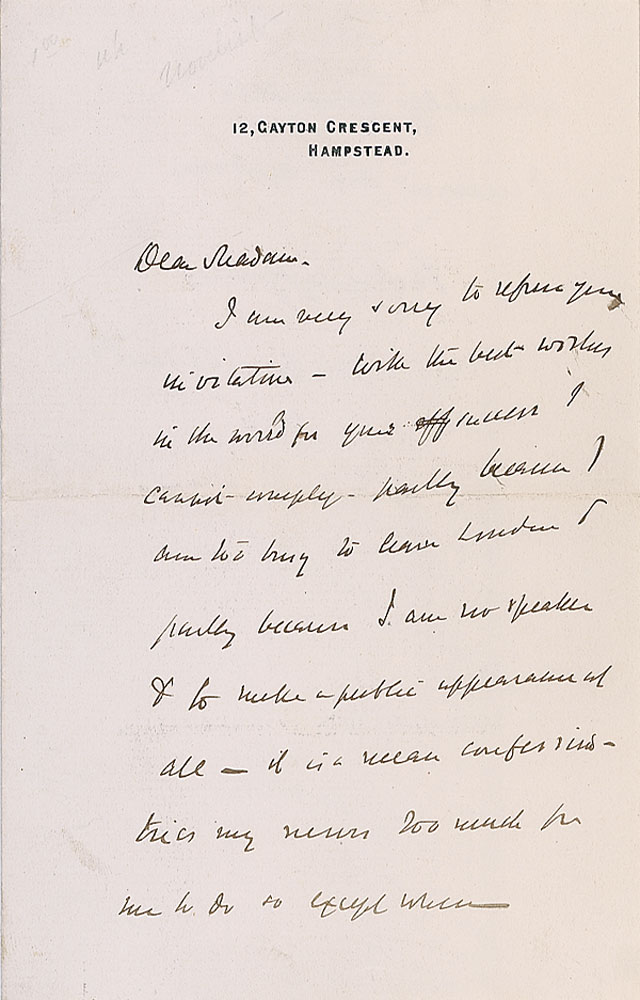 12, GAYTON CRESCENT,
HAMPSTEAD.
Dear Madam.
I am very sorry to refuse your
invitation – with the best wishes
in the world for your success I
cannot comply – partly because I
am too busy to leave London &
partly because I am no speaker
& to make a public appearance at
all — it is a mean confession –
tries my nerves too much for
me to do so except when